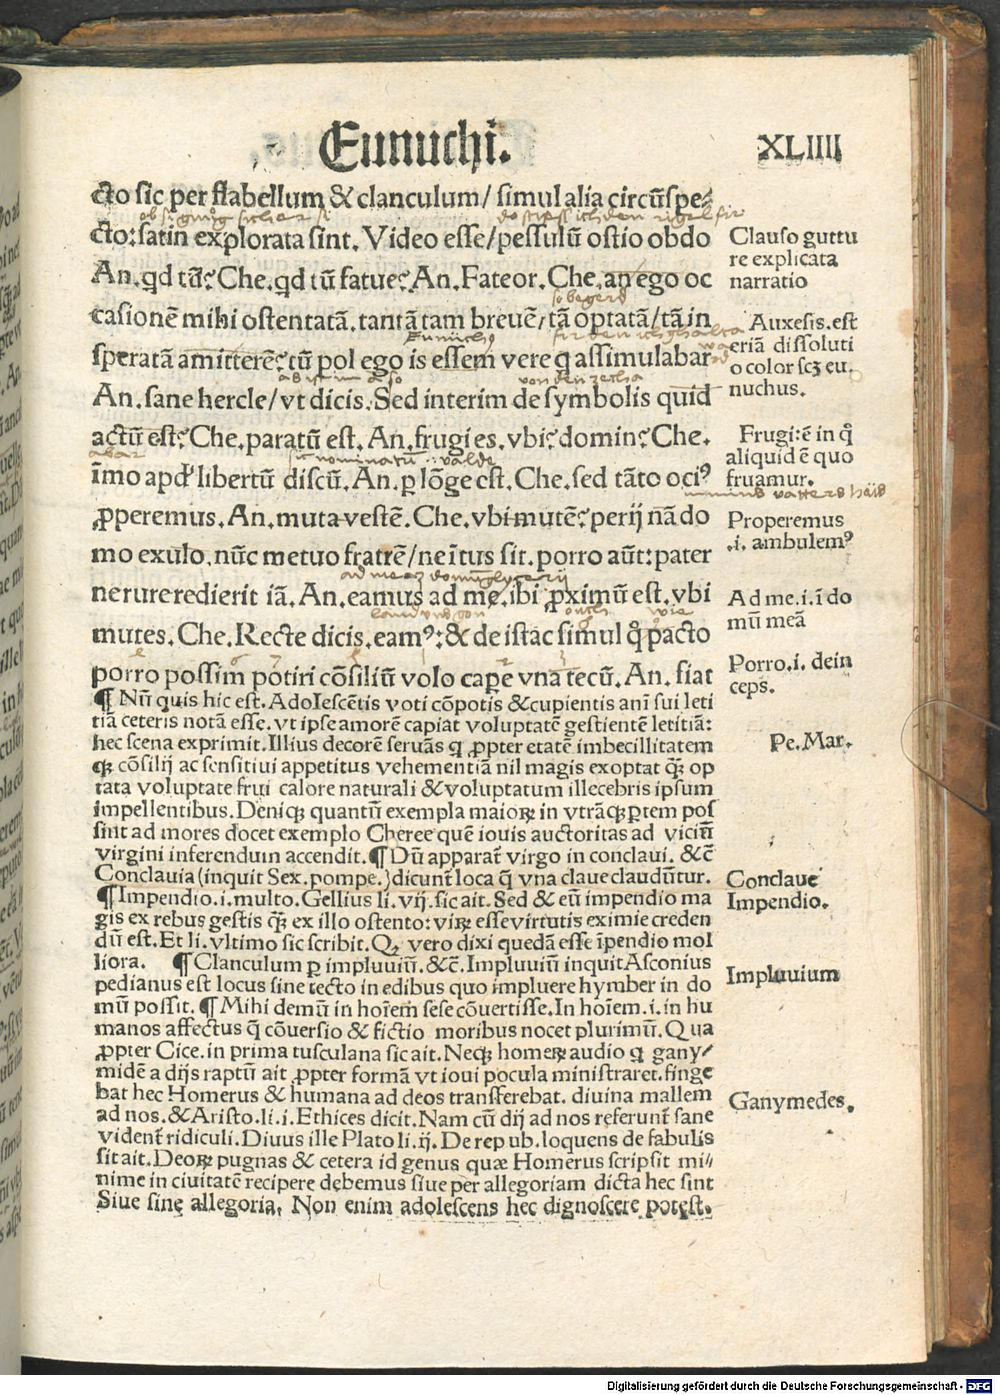 Eunuchi.
XLIIII
cto sic per flabellum & clanculum/ simul alia circūspe⸗
cto: satin explorata sint. Video esse/pessulū ostio obdo
An. qd tū? Che. qd tū fatue? An. Fateor. Che. an ego oc
casionē mihi ostentatā. tantā tam breuē/tā optatā/tā in
speratā amitterē? tū pol ego is essem vere q assimulabar
An. sane hercle/vt dicis. Sed interim de symbolis quid
actū est? Che. paratū est. An. frugi es. vbi? domin? Che.
īmo apd' libertū discū. An. ꝑ lōge est. Che. sed tāto ociꝰ
ꝓperemus. An. muta vestē. Che. vbi mutē? perij nā do
mo exulo. nūc metuo fratrē/ne ītus sit. porro aūt: pater
ne rure redierit iā. An. eamus ad me. ibi ꝓximū est. vbi
mutes. Che. Recte dicis. eamꝰ: & de istac simul q̊ pacto
porro possim potiri cōsiliū volo capere vna tecū. An. fiat
¶ Nū quis hic est. Adolescētis voti cōpotis & cupientis ani sui leti
tiā ceteris notā esse. vt ipse amorē capiat voluptatē gestientē letitiā:
hec scena exprimit. Illius decorē seruās q ꝓpter etatē imbecillitatem
qꝫ cōsilij ac sensitiui appetitus vehementiā nil magis exoptat q̄ꝫ op
tata voluptate frui calore naturali & voluptatum illecebris ipsum
impellentibus. Deniqꝫ quantū exempla maioꝝ in vtrāqꝫ ꝑtem pos
sint ad mores docet exemplo Cheree quē iouis auctoritas ad viciū
virgini inferendum accendit. ¶ Dū apparat̄ virgo in conclaui. &c̄
Conclauia (inquit Sex. pompe.) dicunt loca q̄ vna claue claudūtur.
¶ Impendio .i. multo. Gellius li. vij. sic ait. Sed & eū impendio ma
gis ex rebus gestis q̄ꝫ ex illo ostento: viꝝ esse virtutis eximie creden
dū est. Et li. vltimo sic scribit. Qꝫ vero dixi quedā esse īpendio mol
liora. ¶ Clanculum ꝑ impluuiū. &c̄. Impluuiū inquit Asconius
pedianus est locus sine tecto in edibus quo impluere hymber in do
mū possit. ¶ Mihi demū in hoīem sese cōuertisse. In hoīem .i. in hu
manos affectus q̄ cōuersio & fictio moribus nocet plurimū. Qua
ꝓpter Cice. in prima tusculana sic ait. Neqꝫ homeꝝ audio q gany⸗
midē a dijs raptū ait ꝓpter formā vt ioui pocula ministraret. finge
bat hec Homerus & humana ad deos transferebat. diuina mallem
ad nos. & Aristo. li. i. Ethices dicit. Nam cū dij ad nos referunt̄ sane
vident̄ ridiculi. Diuus ille Plato li. ij. De repub. loquens de fabulis
sit ait. Deoꝝ pugnas & cetera id genus quæ Homerus scripsit mi⸗
nime in ciuitatē recipere debemus siue per allegoriam dicta hec sint
Siue sine allegoria. Non enim adolescens hec dignoscere potest.
Clauso guttu
re explicata
narratio
Auxesis. est
eriā dissoluti
o color scꝫ eu.
nuchus.
Frugi: ē in q̊
aliquid ē quo
fruamur.
Properemus
.i. ambulemꝰ
Ad me .i. ī do
mū meā
Porro .i. dein
ceps.
Pe. Mar.
Conclaue
Impendio.
Impluuium
Ganymedes.
Digitalisierung gefördert durch die Deutsche Forschungsgemeinschaft - DFG